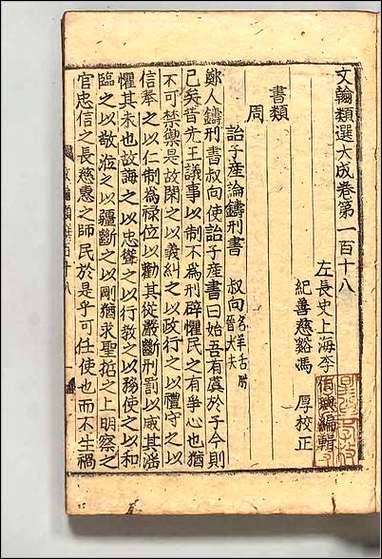 文翰類選大成卷第一百十八
左長史上海李伯璵編輯
紀善慈谿馮 厚校正
書類
周
詒子産論鑄刑書 叔向 名羊舌肸晉大夫
鄭人鑄刑書叔向使詒子産書曰始吾有虞於子今則
已矣昔先王議事以制不為刑辟懼民之有爭心也猶
不可禁禦是故閑之以義糾之以政行之以禮守之以
信奉之以仁制為祿位以勸其從嚴斷刑罰以威其淫
懼其未也故誨之以忠聳之以行教之以務使之以和
臨之以敬涖之以彊斷之以剛猶求聖哲之上明察之
官忠信之長慈惠之師民於是乎可任使也而不生禍